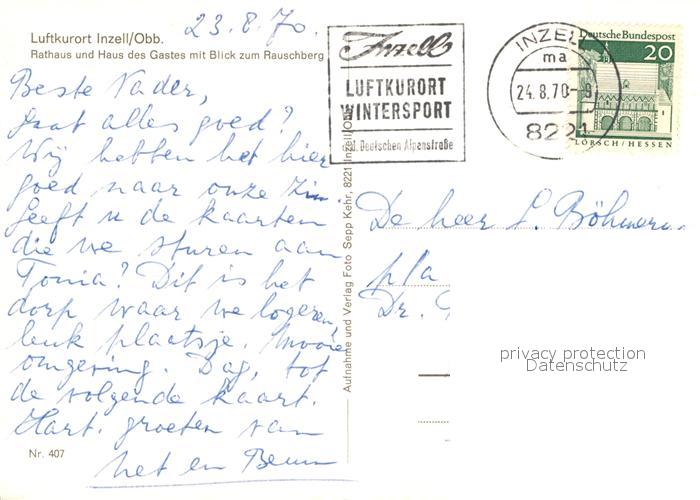 23.8.70.
Luftkurort Inzell/Obb.
Rathaus und Haus des Gastes mit Blick zum Rauschberg
Beste Vader,
Gaat alles goed?
Wij hebben het hier
goed naar onze zin.
Geeft u de kaarten
die we sturen aan
Tonia? Dit is het
dorp waar we logeren,
leuk plaatsje. Mooie
omgeving. Dag, tot
de volgende kaart.
Hart. groeten van
Nr. 407
Aufnahme und Verlag Foto Sepp Kehr, 8221 Inzell/Obb.
Inzell
LUFTKURORT
WINTERSPORT
a.d. Deutschen Alpenstraße
INZELL
ma
24.8.70-9
8221
Deutsche Bundespost
20
LORSCH/HESSEN
De heer L.
p/a
Dr.
privacy protection
Datenschutz